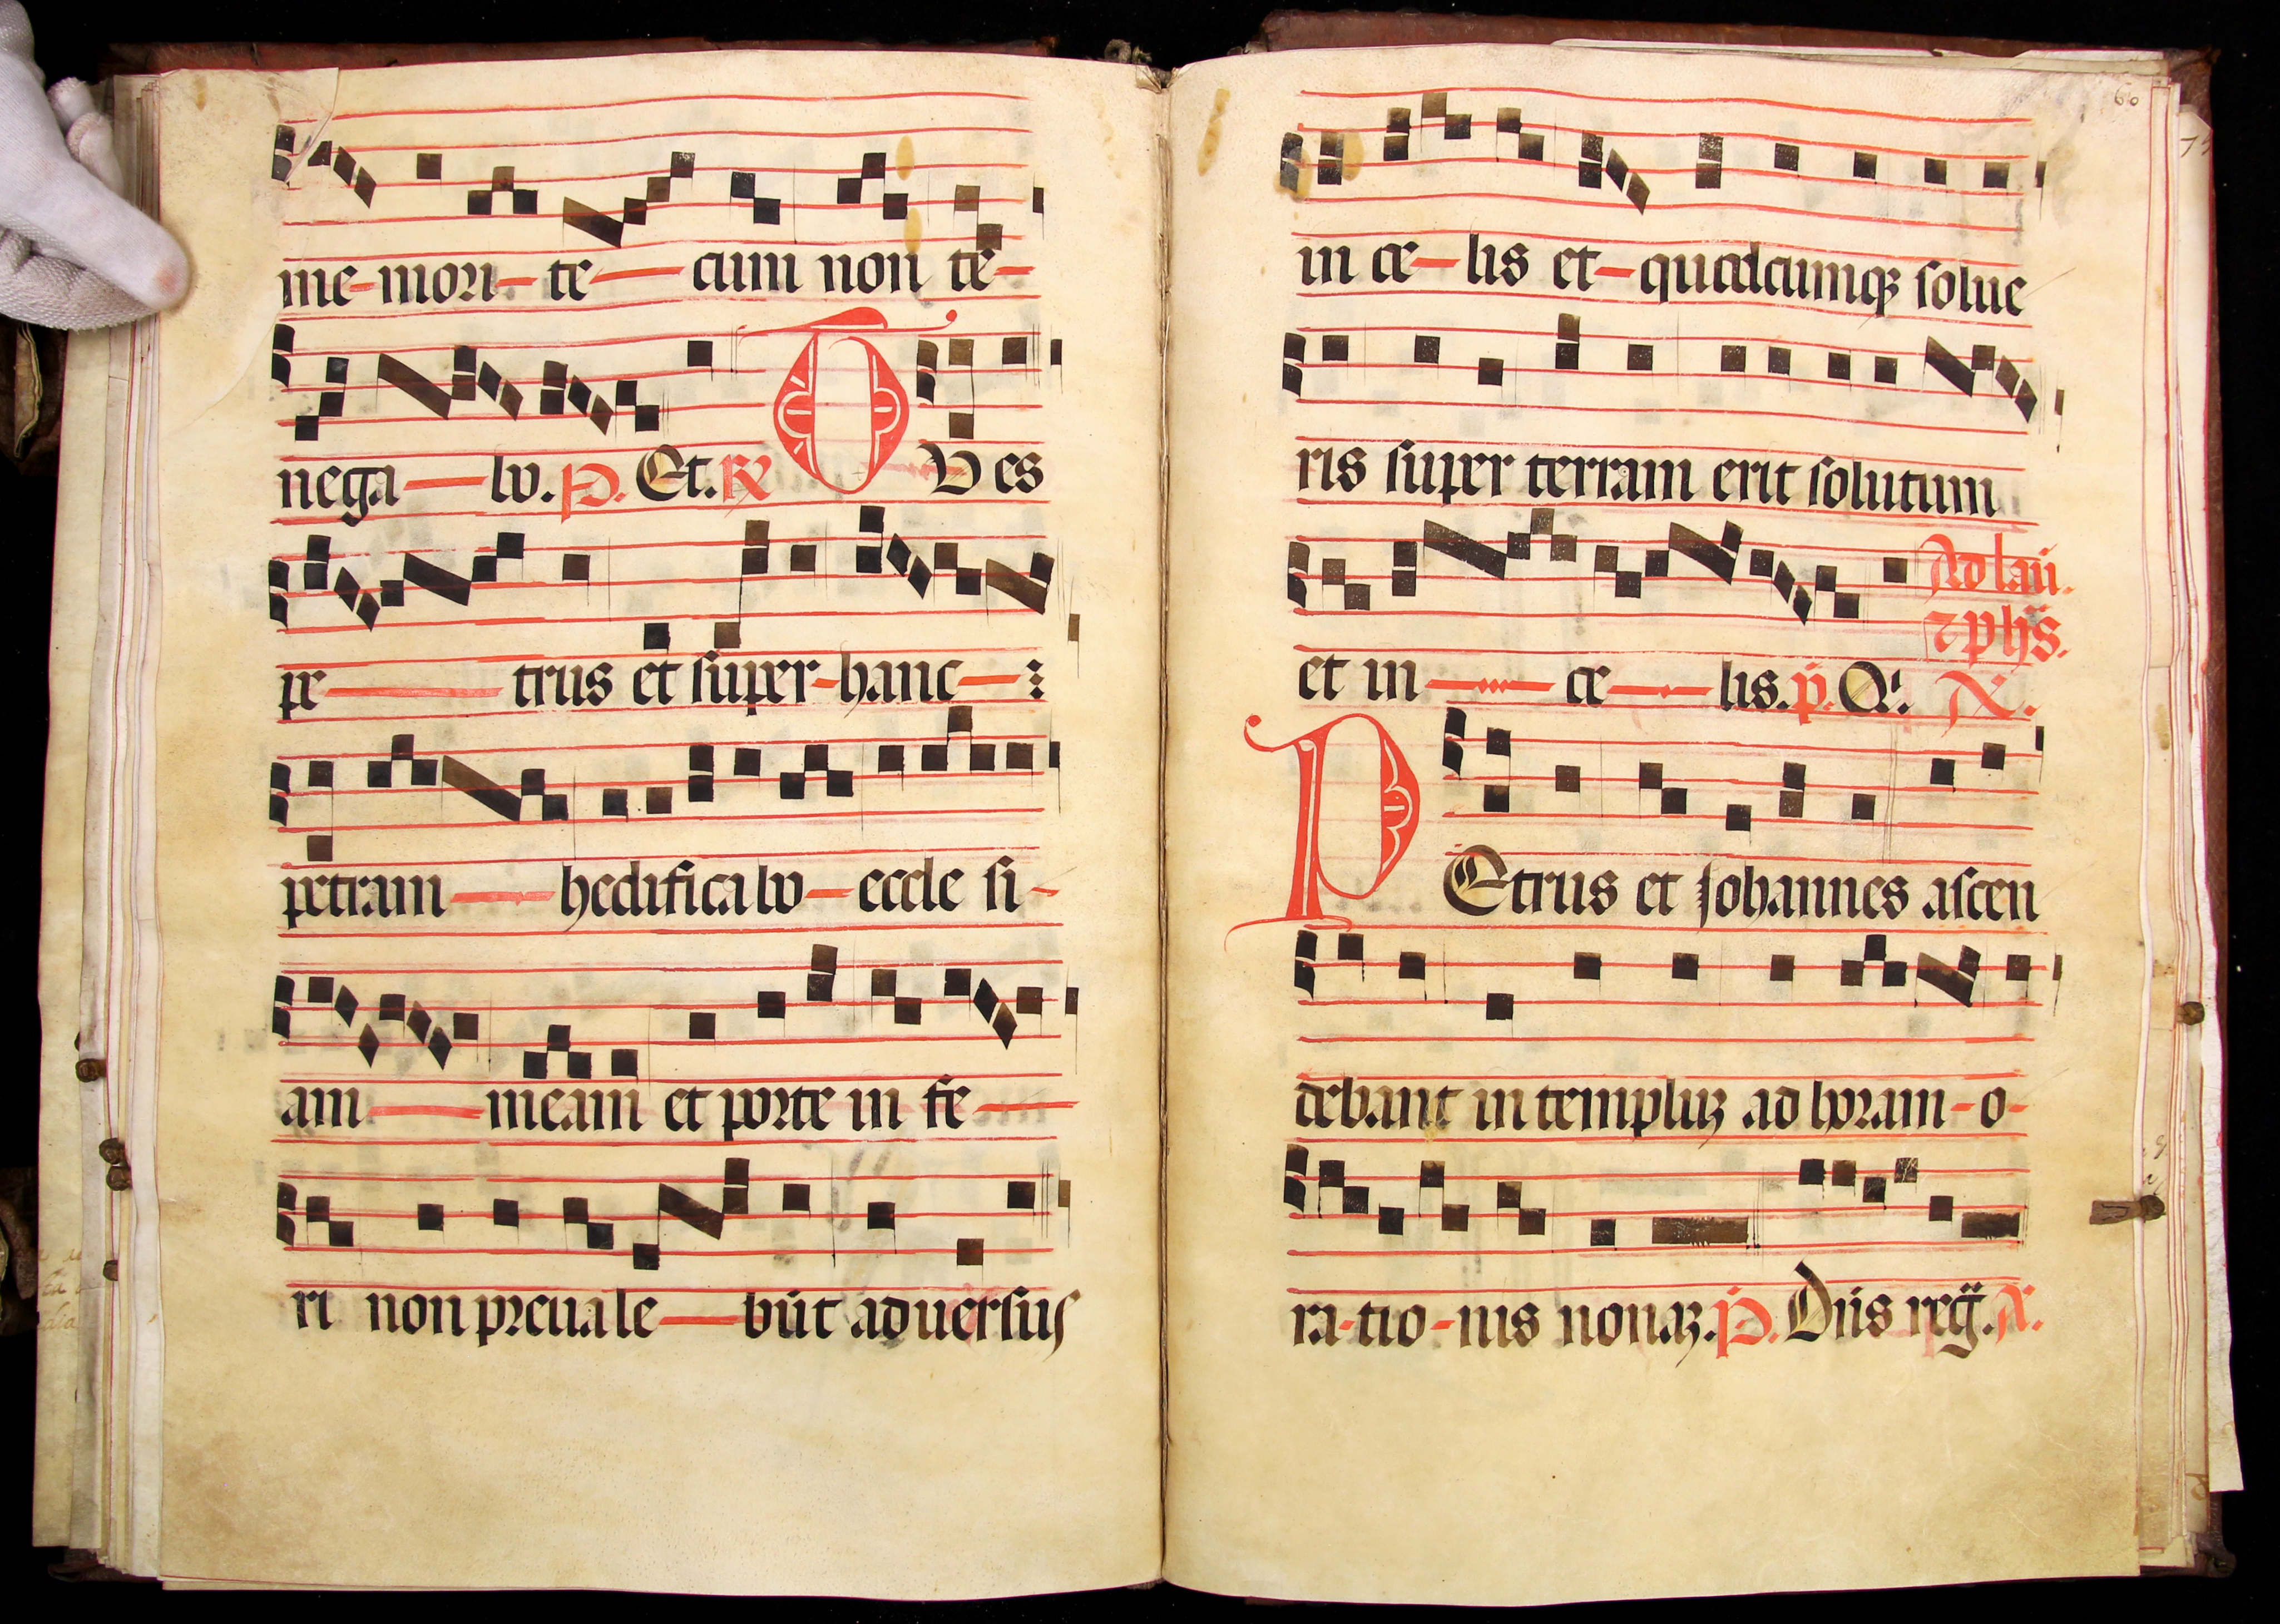 me-mori-te-cum non te-
nega-bo. P. Et. R TV es
pe-trus et super-hanc-
petram-hedificabo-eccle si-
am-meam et porte in fe-
ri non preuale-būt aduersus
60
in ce-lis et-quodcumqꝫ solue
ris super terram erit solutum
Ad lau.
⁊ p hʒ.
et in-ce-lis. p. Qī. A.
PEtrus et Johannes ascen
debant in templuꝫ ad horam-o-
ra-tio-nis nonaꝫ. P. Dn̄s reg. A.